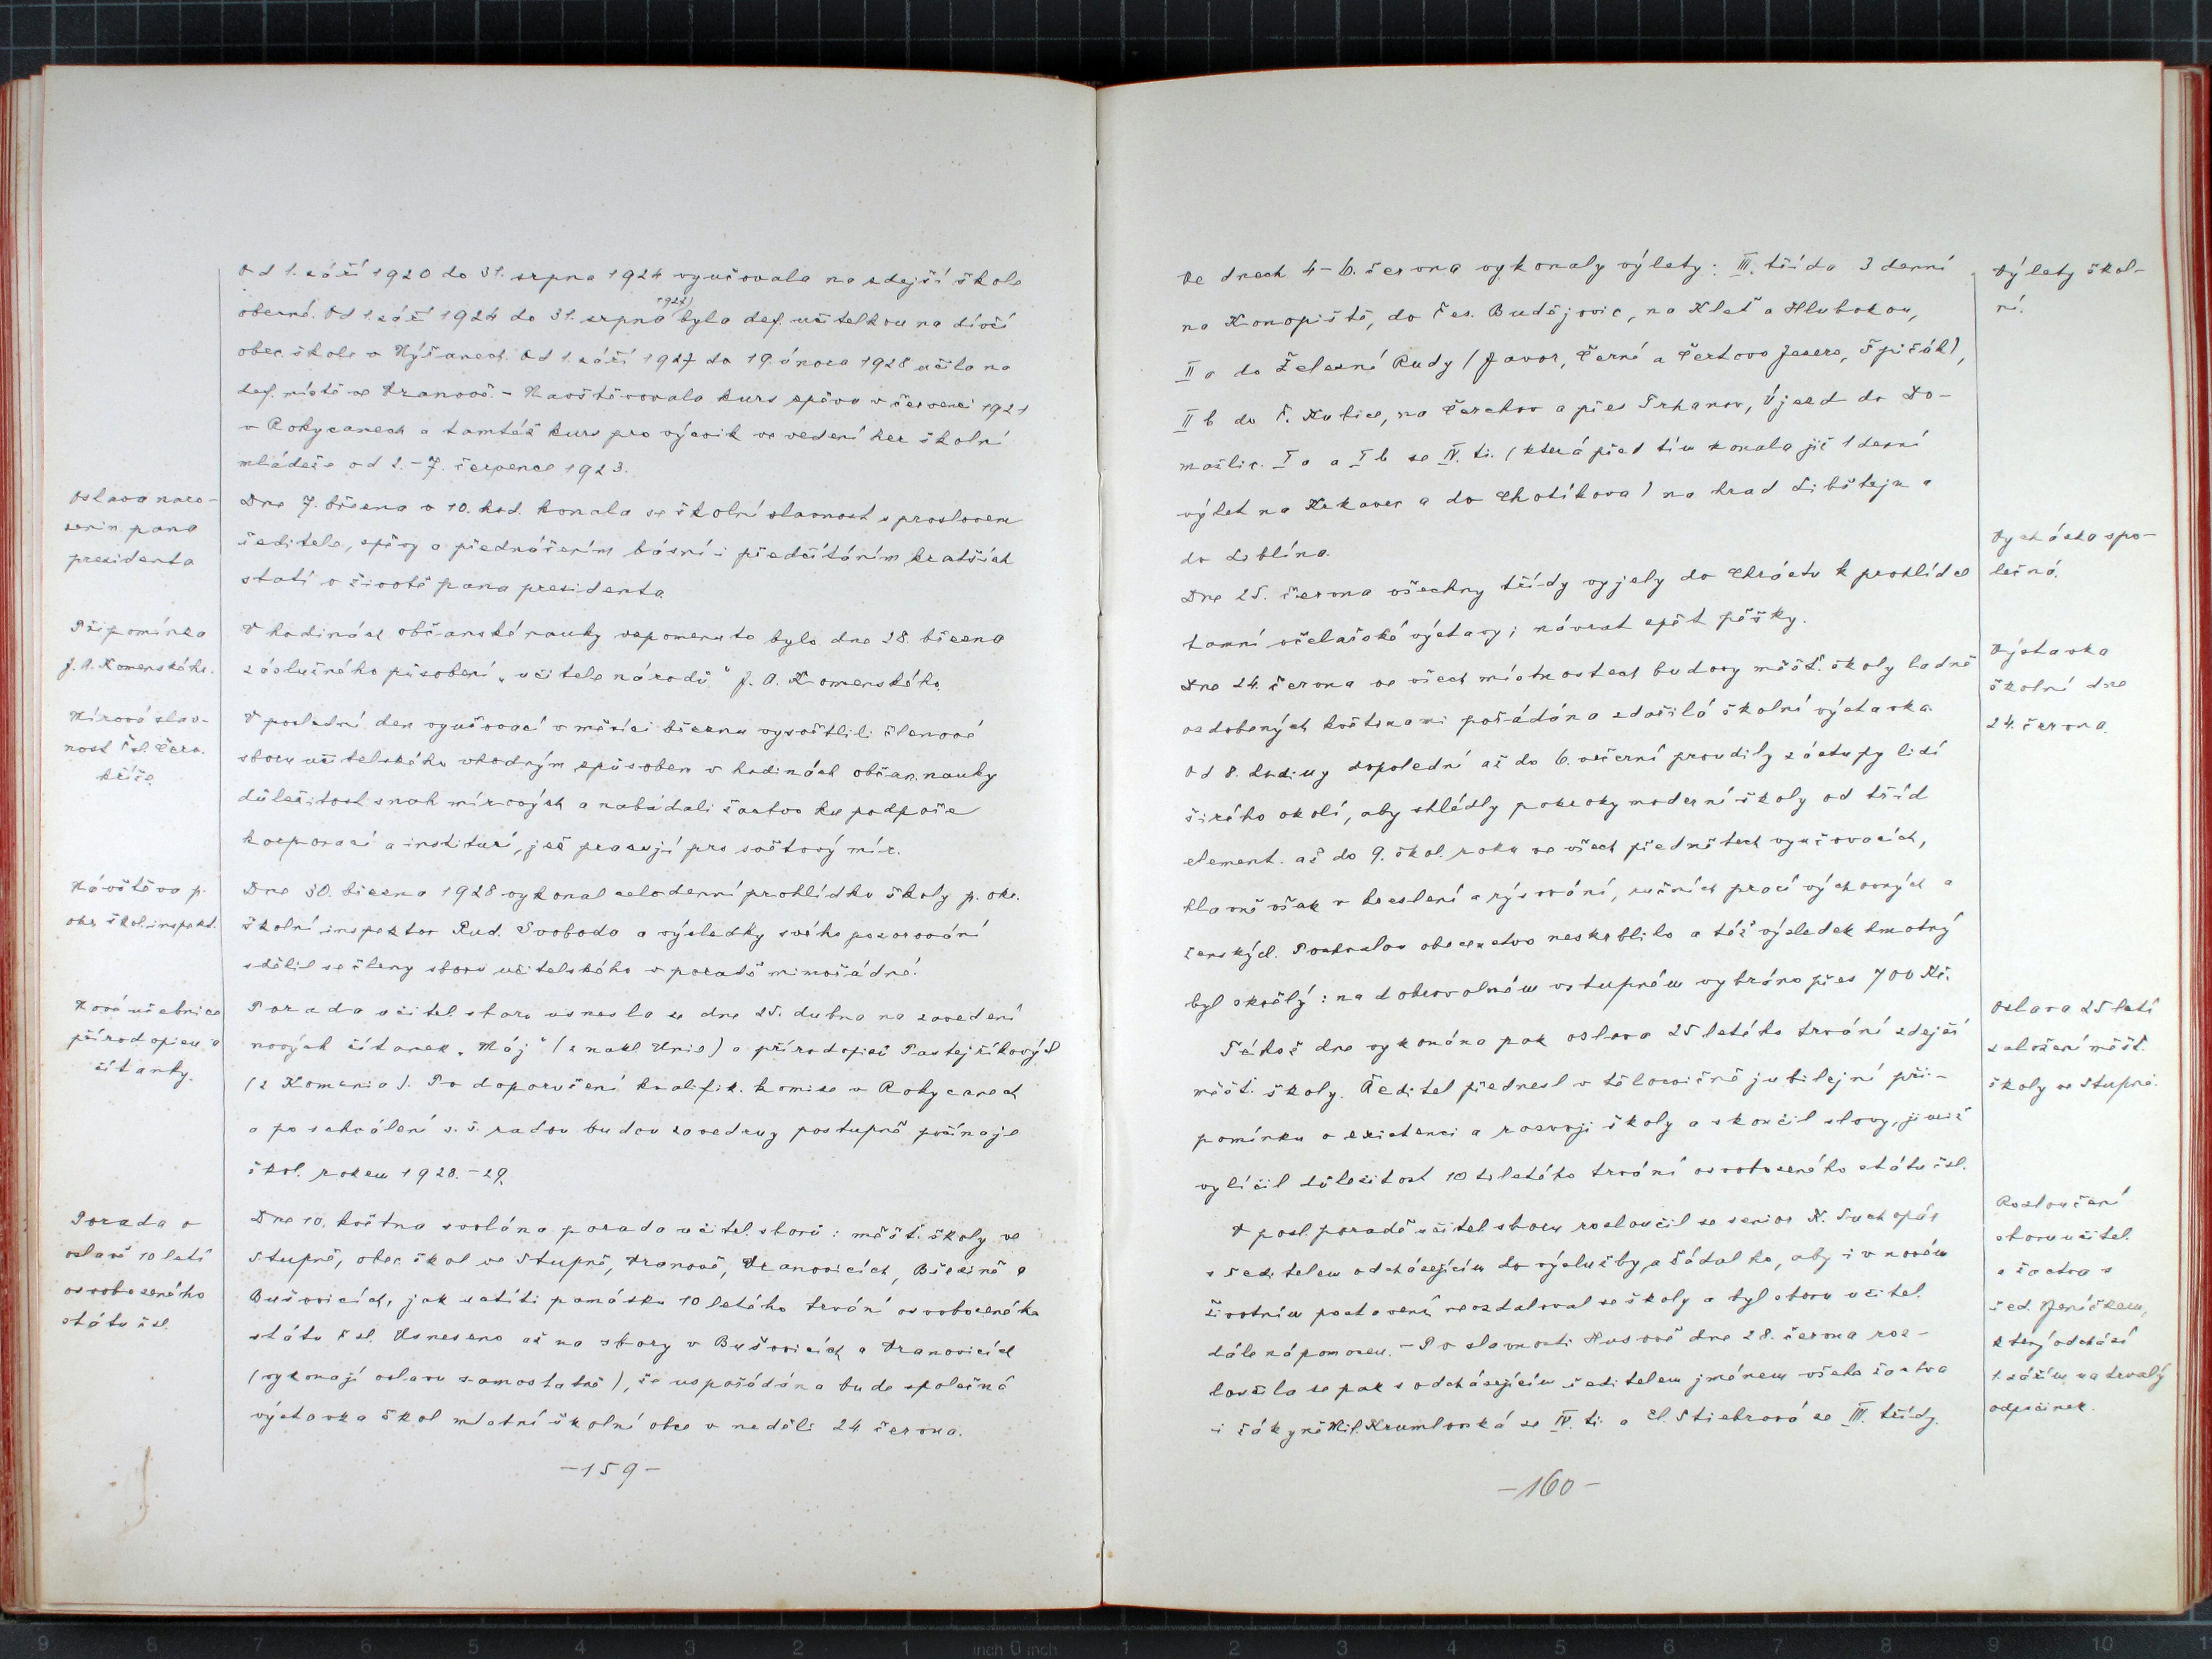 Od 1. září 1920 do 31. srpna 1924 vyučovala na zdejší škole
obecné. Od 1. září 1924 do 31. srpna 1927 byla def. učitelkou na dívčí
obec. škole v Nýřanech. Od 1. září 1927 do 19. února 1928 učila na
def. místě ve Vranově. - Navštěvovala kurs zpěvu v červenci 1921
v Rokycanech a tamtéž kurs pro výcvik ve vedení her školní
mládeže od 2.-7. července 1923.
Oslava naro-
zenin pana
presidenta
Dne 7. března v 10. hod. konala se školní slavnost s proslovem
ředitele, zpěvy a přednášením básní i předčítáním kratších
statí o životě pana presidenta.
Připomínka
J. A. Komenského.
V hodinách občanské nauky vzpomenuto bylo dne 28. března
záslužného působení „učitele národů" J. A. Komenského.
Mírová slav-
nost Čsl. Červ.
kříže.
V poslední den vyučovací v měsíci březnu vysvětlili členové
sboru učitelského vhodným způsobem v hodinách občan. nauky
důležitost snah mírových a nabádali žactvo ku podpoře
korporací a institucí, jež pracují pro světový mír.
Návštěva p.
okr. škol. inspekt.
Dne 30. března 1928 vykonal celodenní prohlídku školy p. okr.
školní inspektor Rud. Svoboda a výsledky svého pozorování
sdělil se členy sboru učitelského v poradě mimořádné.
Nová učebnice
přírodopisu a
čítanky.
Porada učitel. sboru usnesla se dne 25. dubna na zavedení
nových čítanek „Máj" (z nakl. Unie) a přírodopisů Pastejříkových
(z Komenia). Po doporučení kvalifik. komise v Rokycanech
a po schválení z. š. radou budou zavedeny postupně počínaje
škol. rokem 1928.-29.
Porada o
oslavě 10 letí
osvobozeného
státu čsl.
Dne 10. května svolána porada učitel. sborů: měšť. školy ve
Stupně, obec. škol ve Stupně, Vranově, Vranovicích, Březině a
Bušovicích, jak uctíti památku 10 letého trvání osvobozeného
státu čsl. Usneseno až na sbory v Bušovicích a Vranovicích
(vykonají oslavu samostatně), že uspořádána bude společná
výstavka škol místní školní obce v neděli 24. června.
-159-
Ve dnech 4-6. června vykonaly výlety: III. třída 3 denní
na Konopiště, do Čes. Budějovic, na Kleť a Hlubokou,
II a do Železné Rudy (Javor, Černé a Čertovo Jezero, Špičák),
II b do Č. Kubice, na Čerchov a přes Trhanov, Újezd do Do-
mažlic. I a a I b se IV. tř. (která před tím konala již 1 denní
výlet na Krkavec a do Chotíkova) na hrad Libštejn a
do Liblína.
Výlety škol-
ní.
Dne 25. června všechny třídy vyjely do Chrástu k prohlídce
tamní včelařské výstavy; návrat zpět pěšky.
Vycházka spo-
lečná.
Dne 24. června ve všech místnostech budovy měšť. školy ladně
ozdobených květinami pořádána zdařilá školní výstavka.
Od 8. hodiny dopolední až do 6. večerní proudily zástupy lidí
širého okolí, aby shlédly pokroky moderní školy od tříd
element. až do 9. škol. roku ve všech předmětech vyučovacích,
hlavně však v kreslení a rýsování, ručních prací výchovných a
ženských. Pochvalou obecenstvo neskrblilo a též výsledek hmotný
byl skvělý: na dobrovolném vstupném vybráno přes 700 Kč.
Výstavka
školní dne
24. června.
Téhož dne vykonána pak oslava 25 letého trvání zdejší
měšť. školy. Ředitel přednesl v tělocvičně jubilejní při-
pomínku o existenci a rozvoji školy a skončil slovy, jimiž
vylíčil důležitost 10 tiletého trvání osvobozeného státu čsl.
Oslava 25 letí
založení měšť.
školy ve Stupně.
V posl. poradě učitel. sboru rozloučil se senior K. Suchopár
s ředitelem odcházejícím do výslužby, a žádal ho, aby i v novém
životním postavení nevzdaloval se školy a byl sboru učitel.
dále nápomocen. - Po slavnosti Husově dne 28. června roz-
loučila se pak s odcházejícím ředitelem jménem všeho žactva
i žákyně Mil. Krumlovská ze IV. tř. a El. Stiebrová ze III. třídy.
Rozloučení
sboru učitel.
a žactva s
řed. Jeníčkem,
který odchází
1. zářím na trvalý
odpočinek.
-160-